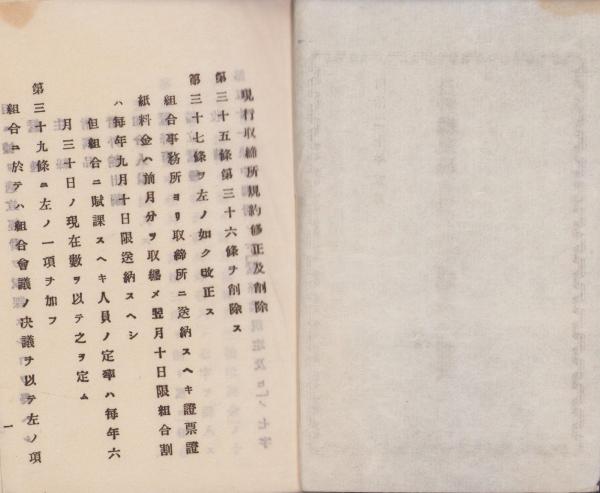 現行取締所規約修正及削除
第三十五條第三十六條ヲ削除ス
第三十七條ヲ左ノ如ク改正ス
組合事務所ヨリ取締所ニ送納スヘキ證票證
紙料金ハ前月分ヲ取纒メ翌月十日限組合割
ハ毎年九月十日限送納スヘシ
但組合ニ賦課スヘキ人員ノ定率ハ毎年六
月三十日ノ現在數ヲ以テ之ヲ定ム
第三十九條ニ左ノ一項ヲ加フ
組合ニ於テハ組合會議ノ決議ヲ以テ左ノ項
一